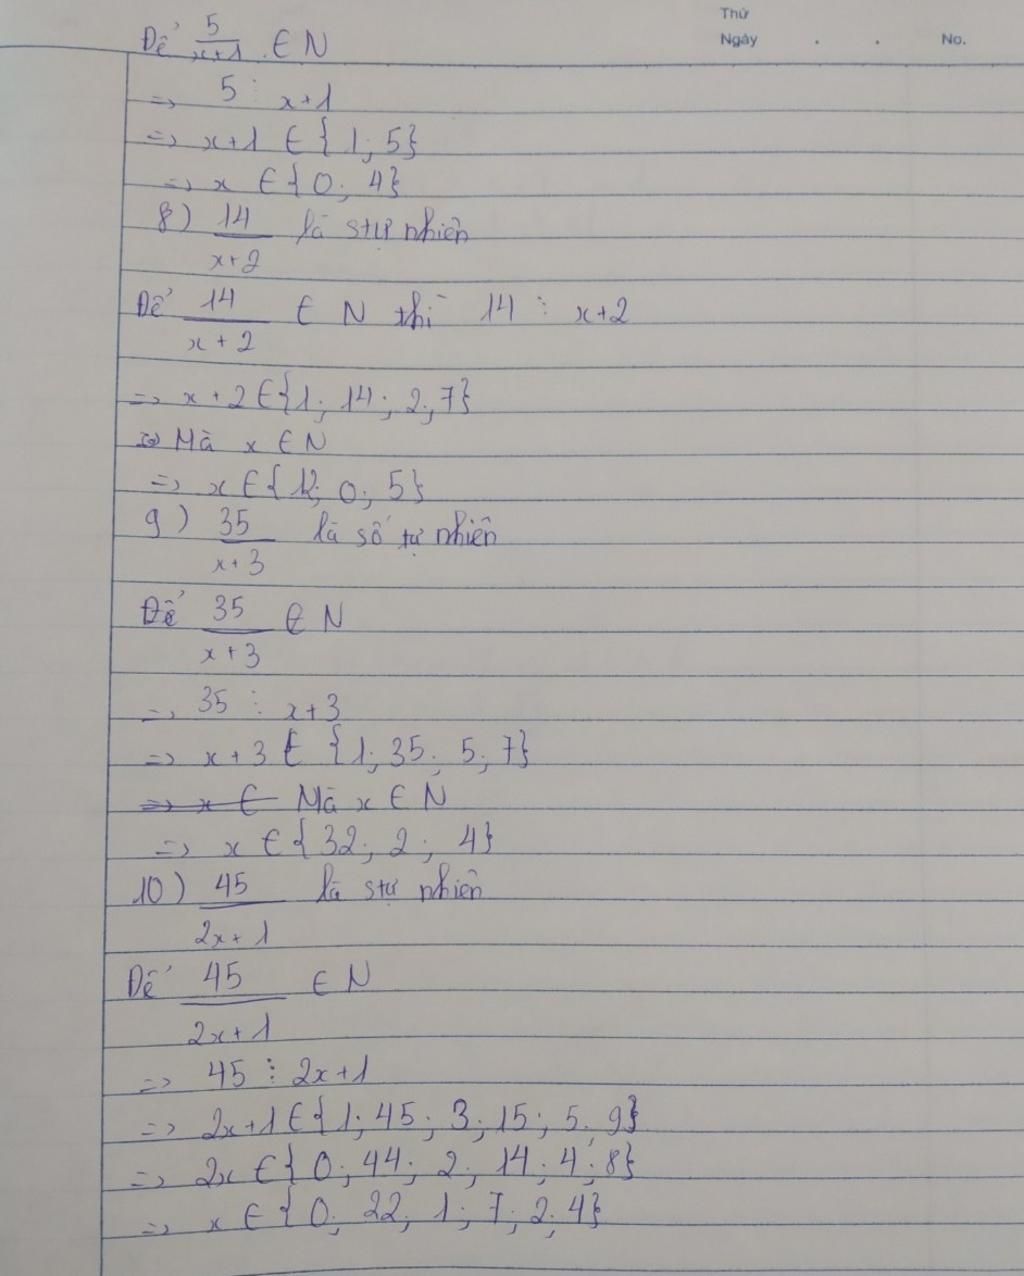 Thứ
Ngày . . No.
Để 5/x+1 ∈ N
=> 5 ⋮ x+1
=> x+1 ∈ {1; 5}
=> x ∈ {0; 4}
8) 14/x+2 là stự nhiên
Để 14/x+2 ∈ N thì 14 ⋮ x+2
=> x+2 ∈ {1; 14; 2; 7}
Mà x ∈ N
=> x ∈ {12; 0; 5}
9) 35/x+3 là số tự nhiên
Để 35/x+3 ∈ N
=> 35 ⋮ x+3
=> x+3 ∈ {1; 35; 5; 7}
=> x ∈ Mà x ∈ N
=> x ∈ {32; 2; 4}
10) 45/2x+1 là stự nhiên
Để 45/2x+1 ∈ N
=> 45 ⋮ 2x+1
=> 2x+1 ∈ {1; 45; 3; 15; 5; 9}
=> 2x ∈ {0; 44; 2; 14; 4; 8}
=> x ∈ {0; 22; 1; 7; 2; 4}